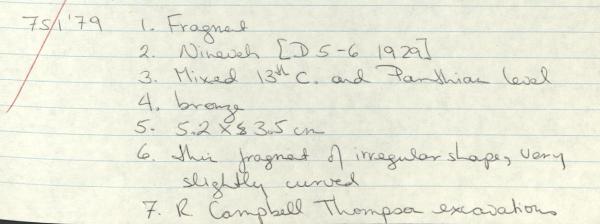 751'79 1. Fragment
2. Nineveh [D 5-6 1929]
3. Mixed 13th C. and Parthian level
4. bronze
5. 5.2 x 3.5 cm
6. thin fragment of irregular shape, very
slightly curved
7. R Campbell Thompson excavations